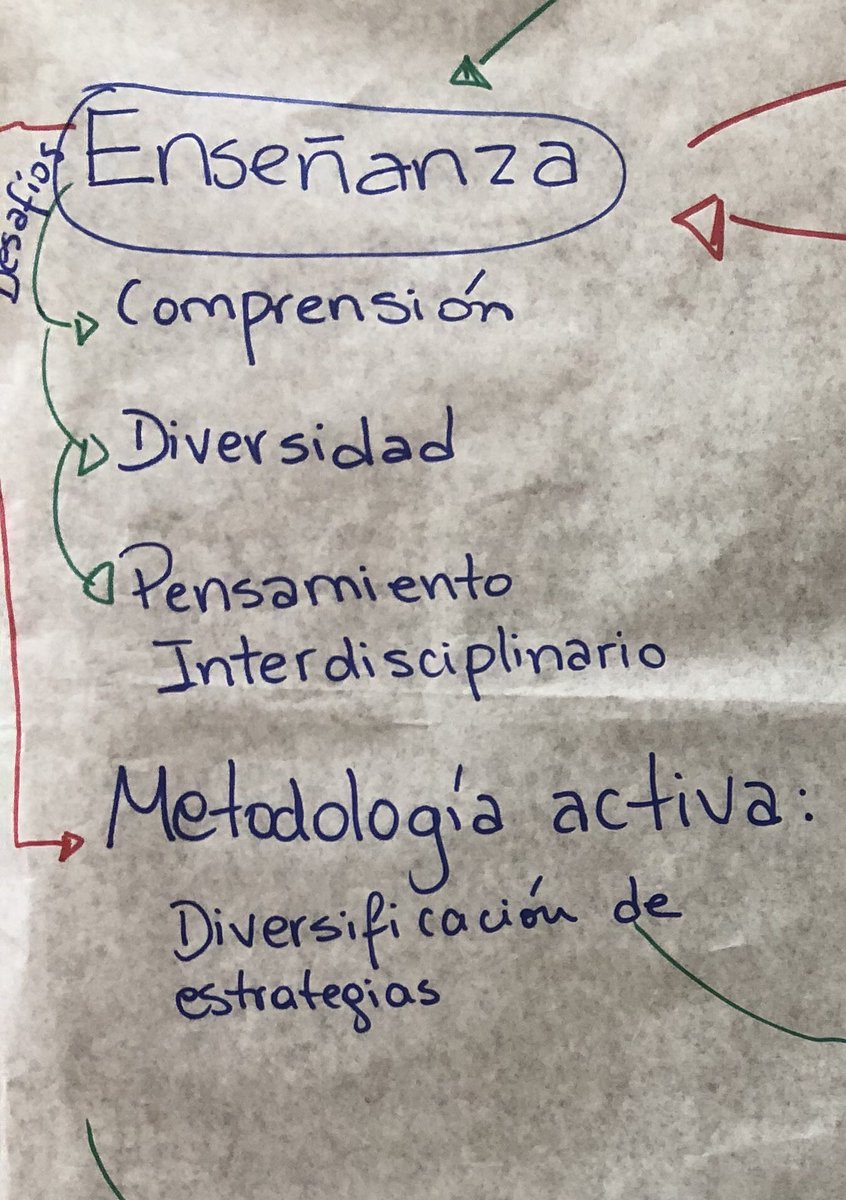 Enseñanza
Desafios
Comprensión
Diversidad
Pensamiento
Interdisciplinario
Metodología activa:
Diversificación de
estrategias